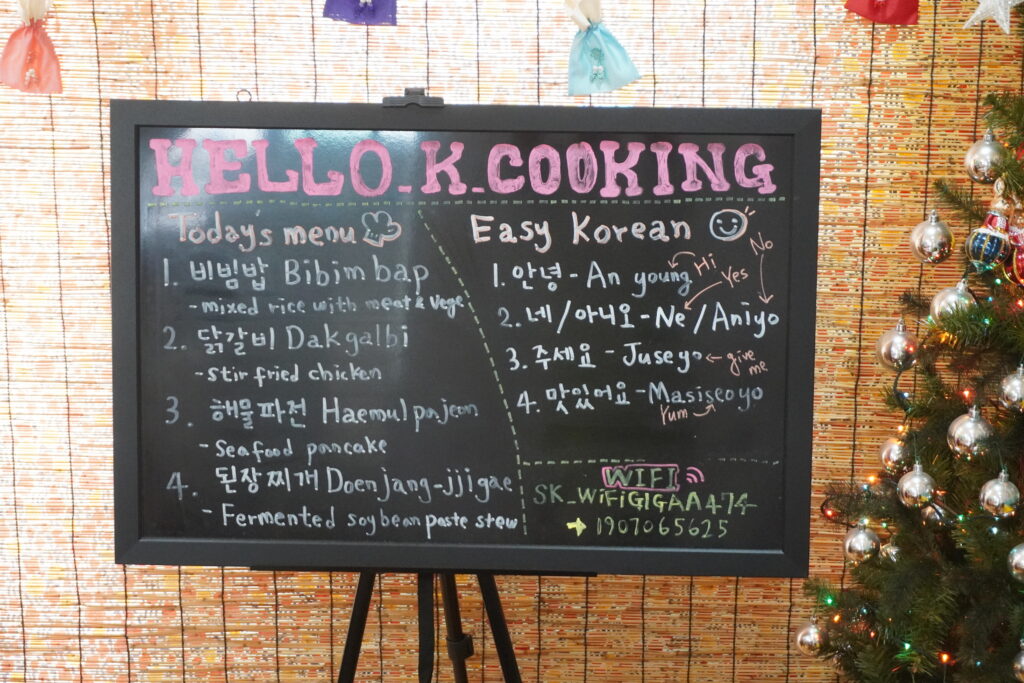 HELLO_K_COOKING
Today's menu
1. 비빔밥 Bibimbap
- mixed rice with meat & vege
2. 닭갈비 Dakgalbi
- Stir fried chicken
3. 해물파전 Haemulpajeon
- Seafood pancake
4. 된장찌개 Doenjang-jjigae
- Fermented soybean paste stew
Easy Korean
1. 안녕 - An young
Hi
Yes
No
2. 네/아니요 - Ne/Aniyo
3. 주세요 - Juseyo
give me
4. 맛있어요 - Masiseoyo
Yum
WIFI
SK_WiFiGIGAA474
→ 1907065625